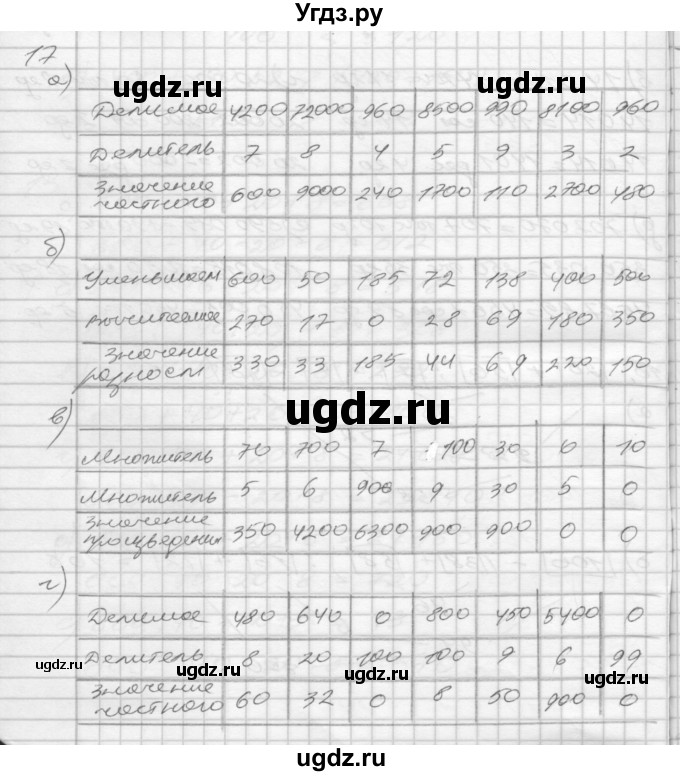 Угдз.ру
17
а)
Делимое 4200 72000 960 8500 990 8100 960
Делитель 7 8 4 5 9 3 2
Значение частного 600 9000 240 1700 110 2700 480
б)
Уменьшаем 600 50 185 72 138 400 500
Вычитаемое 270 17 0 28 69 180 350
Значение разности 330 33 185 44 69 220 150
в)
Множитель 70 700 7 100 30 0 10
Множитель 5 6 900 9 30 5 0
Значение произведения 350 4200 6300 900 900 0 0
г)
Делимое 480 640 0 800 450 5400 0
Делитель 8 20 100 100 9 6 99
Значение частного 60 32 0 8 50 900 0
ugdz.ru
ugdz.ru
ugdz.ru
ugdz.ru
ugdz.ru
ugdz.ru
ugdz.ru
ugdz.ru